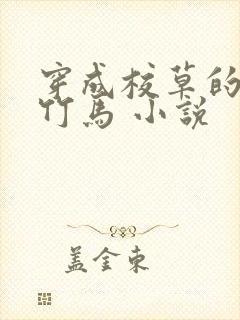 穿成校草的
竹馬 小說
盖金東